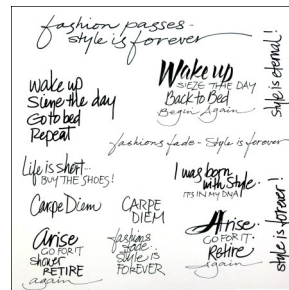 fashion passes -
style is forever
Wake up
Sieze the day
Go to bed
Repeat
Wake up
SIEZE THE DAY
Back to Bed
Begin Again
style is eternal!
fashions fade - Style is forever
Life is short...
BUY THE SHOES!
I was born
with Style.
IT'S IN MY DNA
Carpe Diem
CARPE
DIEM
Arise
GO FOR IT
shower
RETIRE
again
fashions
fade
style is
FOREVER
Arise.
GO FOR IT.
Retire
again
style is forever!